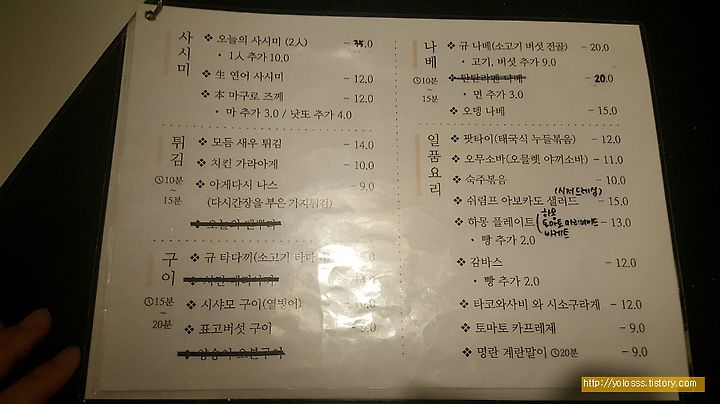 사시미
❖ 오늘의 사시미 (2人) - 35.0
• 1人 추가 10.0
❖ 生 연어 사시미 - 12.0
❖ 本 마구로 즈께 - 12.0
• 마 추가 3.0 / 낫또 추가 4.0
튀김
10분 ~ 15분
❖ 모듬 새우 튀김 - 14.0
❖ 치킨 가라아게 - 10.0
❖ 아게다시 나스 - 9.0
(다시간장을 부은 가지튀김)
구이
15분 ~ 20분
❖ 규 타다끼(소고기
❖ 시샤모 구이(열빙어)
❖ 표고버섯 구이
나베
10분 ~ 15분
❖ 규 나베(소고기 버섯 전골) - 20.0
• 고기, 버섯 추가 9.0
❖ 탄탄라멘 나베 - 20.0
• 면 추가 3.0
❖ 오뎅 나베 - 15.0
일품요리
❖ 팟타이(태국식 누들볶음) - 12.0
❖ 오무소바(오믈렛 야끼소바) - 11.0
❖ 숙주볶음 - 10.0
(시저드레싱)
❖ 쉬림프 아보카도 샐러드 - 15.0
❖ 하몽 플레이트 - 13.0
하몽
바게트
• 빵 추가 2.0
❖ 감바스 - 12.0
• 빵 추가 2.0
❖ 타코와사비 와 시소구라게 - 12.0
❖ 토마토 카프레제 - 9.0
❖ 명란 계란말이 20분 - 9.0
http://yolosss.tistory.com